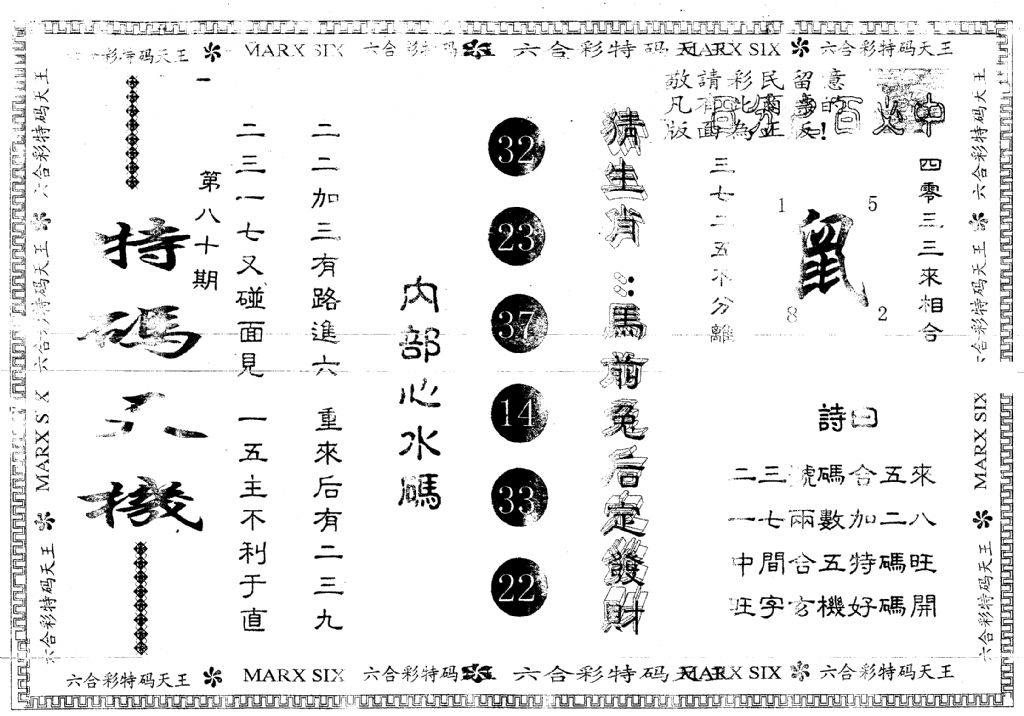 六合彩特码天王 MARX SIX 六合彩特码 六合彩特码天王 MARX SIX 六合彩特码天王
敬請彩民留意
四零三三來相合
1 5
鼠
8 2
三七二五不分離
詩曰
二三號碼合五來
一七兩數加二八
中間合五特碼旺
旺字玄機好碼開
猜生肖:馬前兔后定發財
32
23
37
14
33
22
內部心水碼
二二加三有路進六 重來后有二三九
二三一七又碰面見 一五主不利于直
第八十期
特碼天機
六合彩特码天王
MARX SIX
六合彩特码天王
六合彩特码天王
六合彩特码天王
六合彩特码天王
MARX SIX
六合彩特码天王
六合彩特码天王 MARX SIX 六合彩特码 六合彩特码天王 MARX SIX 六合彩特码天王